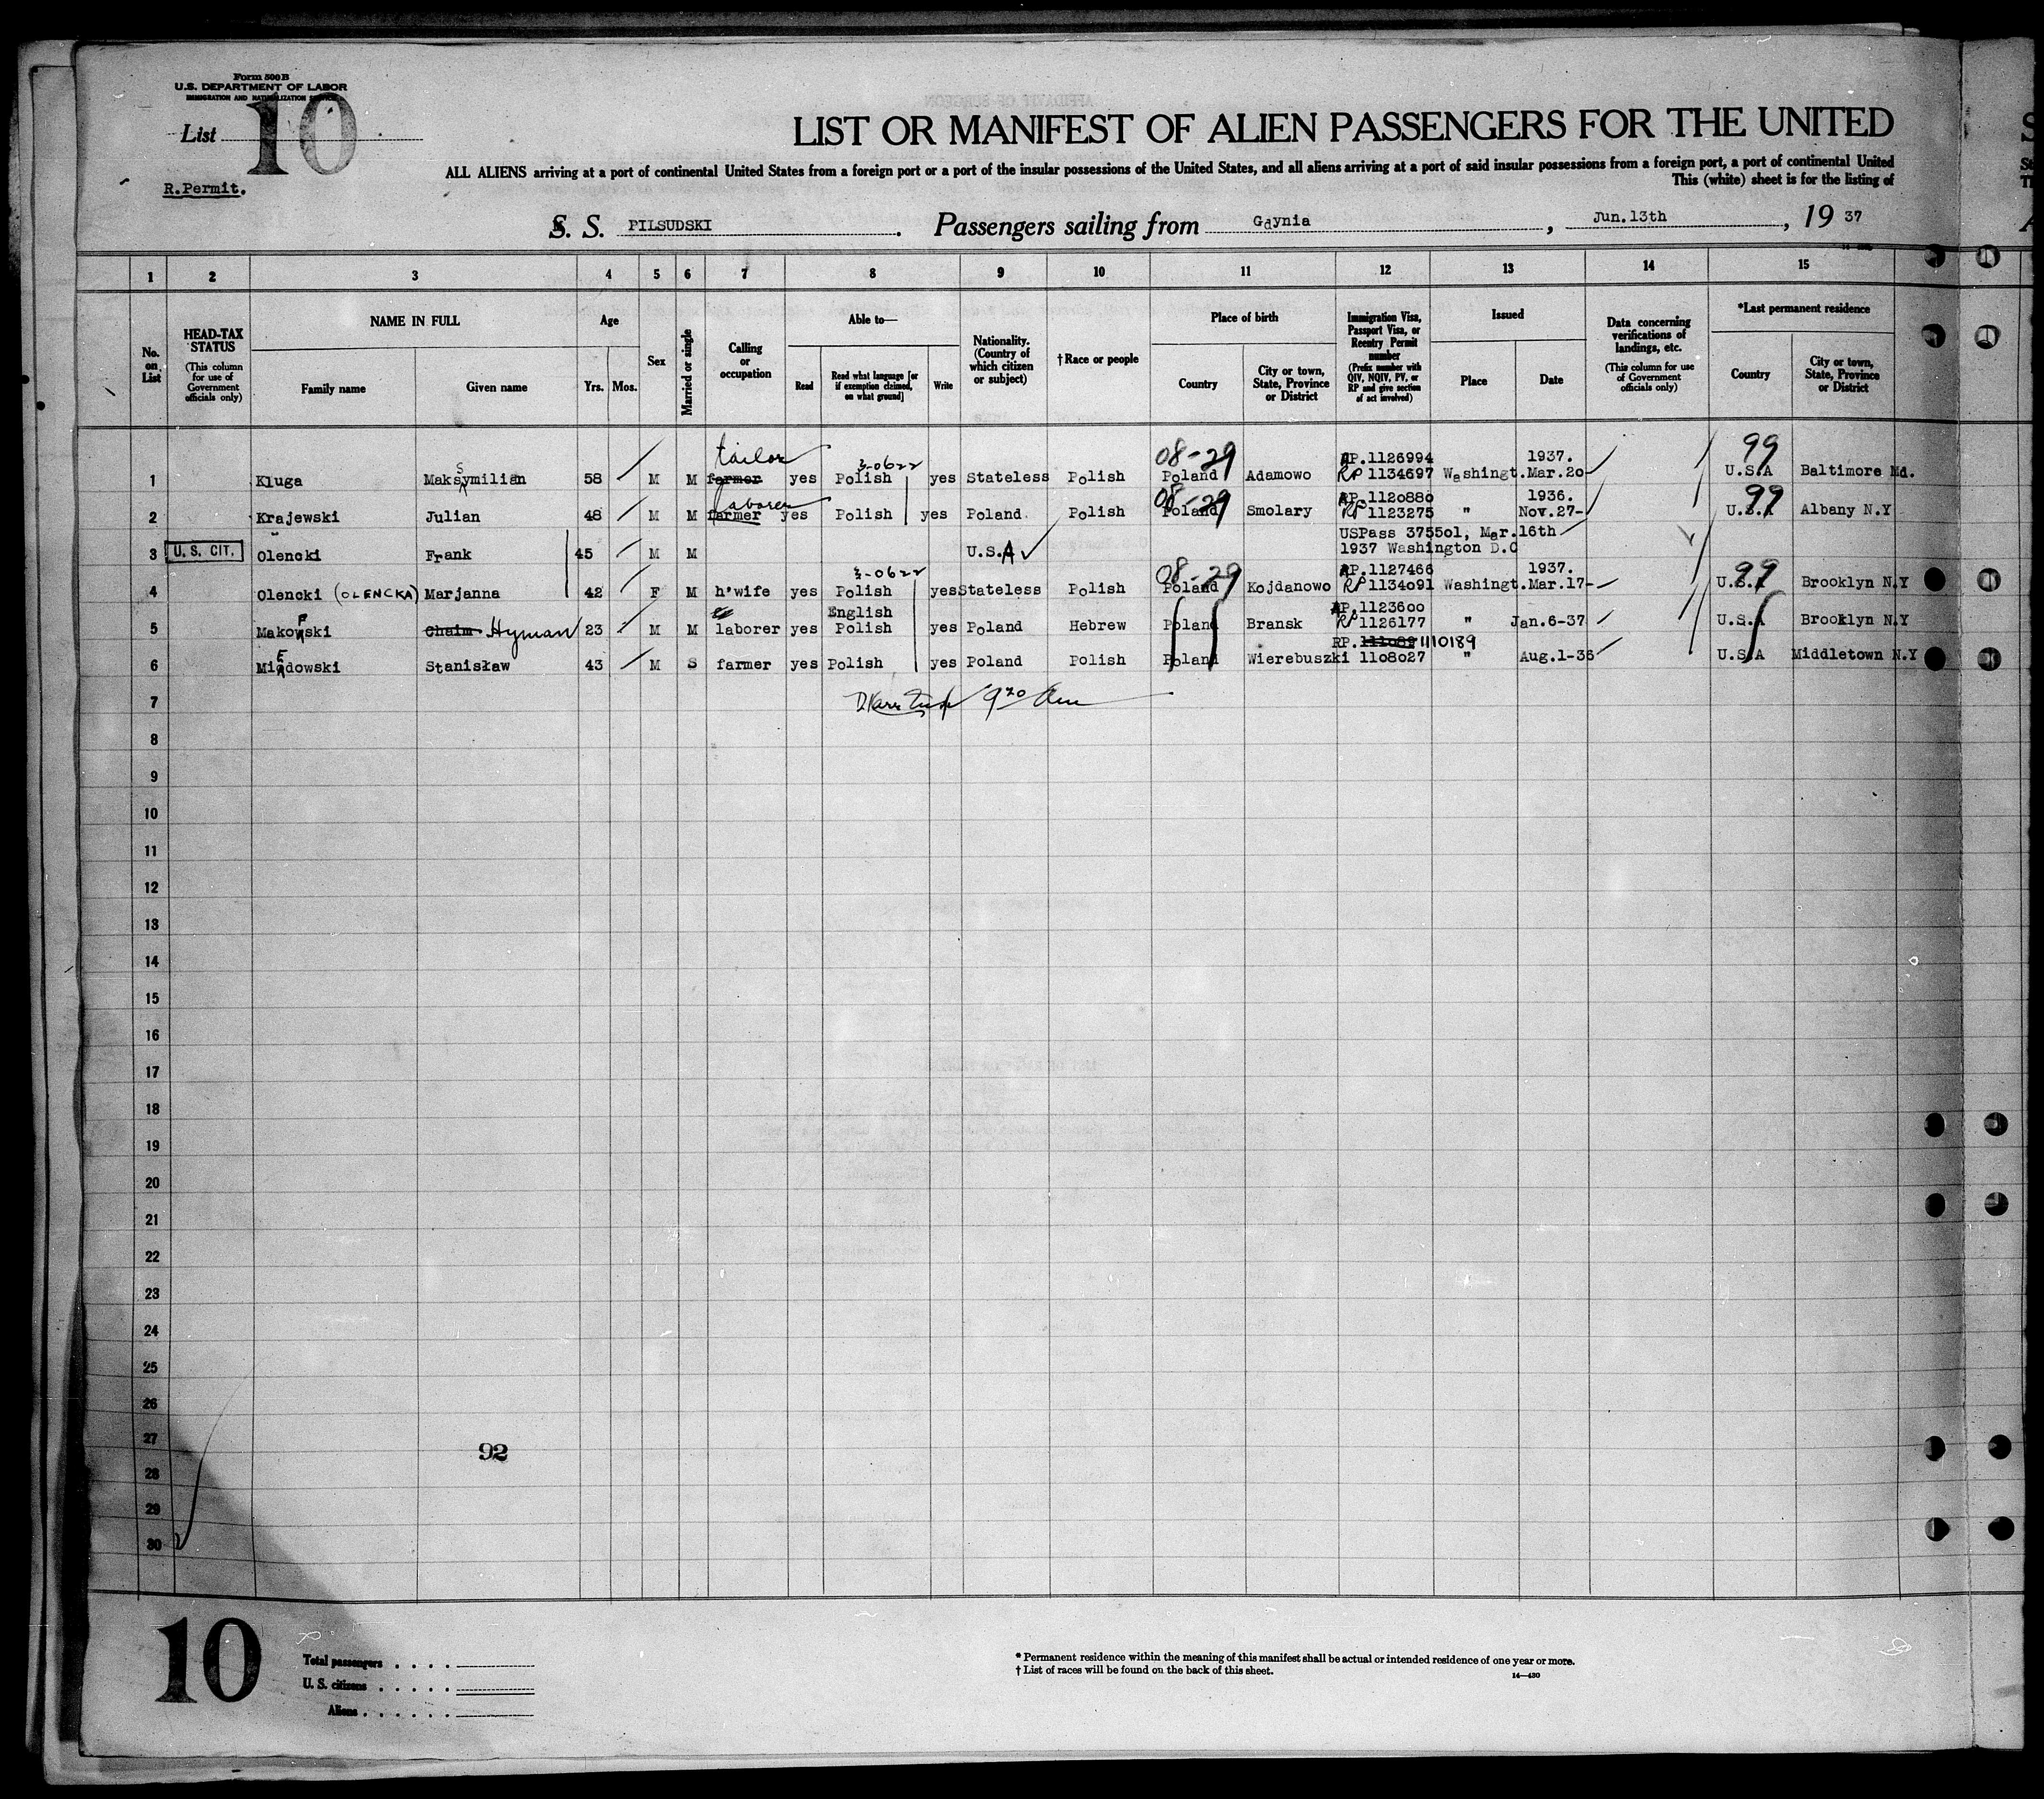 Form 500 B
U.S. DEPARTMENT OF LABOR
IMMIGRATION AND NATURALIZATION SERVICE
List 10
R.Permit.
LIST OR MANIFEST OF ALIEN PASSENGERS FOR THE UNITED
ALL ALIENS arriving at a port of continental United States from a foreign port or a port of the insular possessions of the United States, and all aliens arriving at a port of said insular possessions from a foreign port, a port of continental United
This (white) sheet is for the listing of
S. S. PILSUDSKI. Passengers sailing from Gdynia, Jun.13th, 19 37
1 2 3 4 5 6 7 8 9 10 11 12 13 14 15
No. on List
HEAD-TAX STATUS (This column for use of Government officials only)
NAME IN FULL Family name Given name
Age Yrs. Mos.
Sex
Married or single
Calling or occupation
Able to— Read Read what language [or if exemption claimed, on what ground] Write
Nationality. (Country of which citizen or subject)
† Race or people
Place of birth Country City or town, State, Province or District
Immigration Visa, Passport Visa, or Reentry Permit number (Prefix number with QIV, NQIV, PV, or RP and give section of act involved)
Issued Place Date
Data concerning verifications of landings, etc. (This column for use of Government officials only)
*Last permanent residence Country City or town, State, Province or District
tailor 3-0622 08-29 AP.1126994 1937. 99
1 Kluga Maksymilian S 58 M M farmer yes Polish yes Stateless Polish Poland Adamowo RP 1134697 Washingt.Mar.20 U.S.A Baltimore Md.
laborer 08-29 AP.1120880 1936. 99
2 Krajewski Julian 48 M M farmer yes Polish yes Poland Polish Poland Smolary RP 1123275 " Nov.27- U.S.A Albany N.Y
USPass 375501, Mar.16th
3 U. S. CIT. Olencki Frank 45 M M U.S.A 1937 Washington D.C
3-0622 08-29 AP.1127466 1937. 99
4 Olencki (OLENCKA) Marjanna 42 F M h'wife yes Polish yes Stateless Polish Poland Kojdanowo RP 1134091 Washingt.Mar.17- U.S.A Brooklyn N.Y
English AP.1123600
5 Makowski Chaim Hyman 23 M M laborer yes Polish yes Poland Hebrew Poland Bransk RP 1126177 " Jan.6-37 U.S.A Brooklyn N.Y
E RP. 1110189
6 Miadowski Stanisław 43 M S farmer yes Polish yes Poland Polish Poland Wierebuszki 1108027 " Aug.1-36 U.S.A Middletown N.Y
7 9 20
8
9
10
11
12
13
14
15
16
17
18
19
20
21
22
23
24
25
26
27 92
28
29
30
10
Total passengers
U. S. citizens
Aliens
* Permanent residence within the meaning of this manifest shall be actual or intended residence of one year or more.
† List of races will be found on the back of this sheet. 14—430